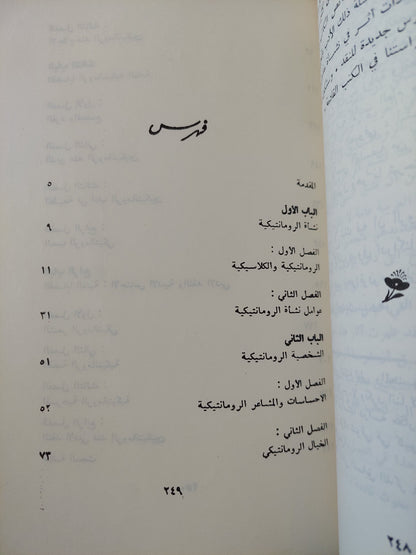 فهرس
المقدمة ٥
الباب الأول
نشأة الرومانتيكية ٩
الفصل الأول :
الرومانتيكية والكلاسيكية ١١
الفصل الثاني :
عوامل نشأة الرومانتيكية ٣١
الباب الثاني
الشخصية الرومانتيكية ٥١
الفصل الأول :
الاحساسات والمشاعر الرومانتيكية ٥٢
الفصل الثاني :
الخيال الرومانتيكي ٧٣
٢٤٩
جديدة للنقد
في الكتب
٢٤٨